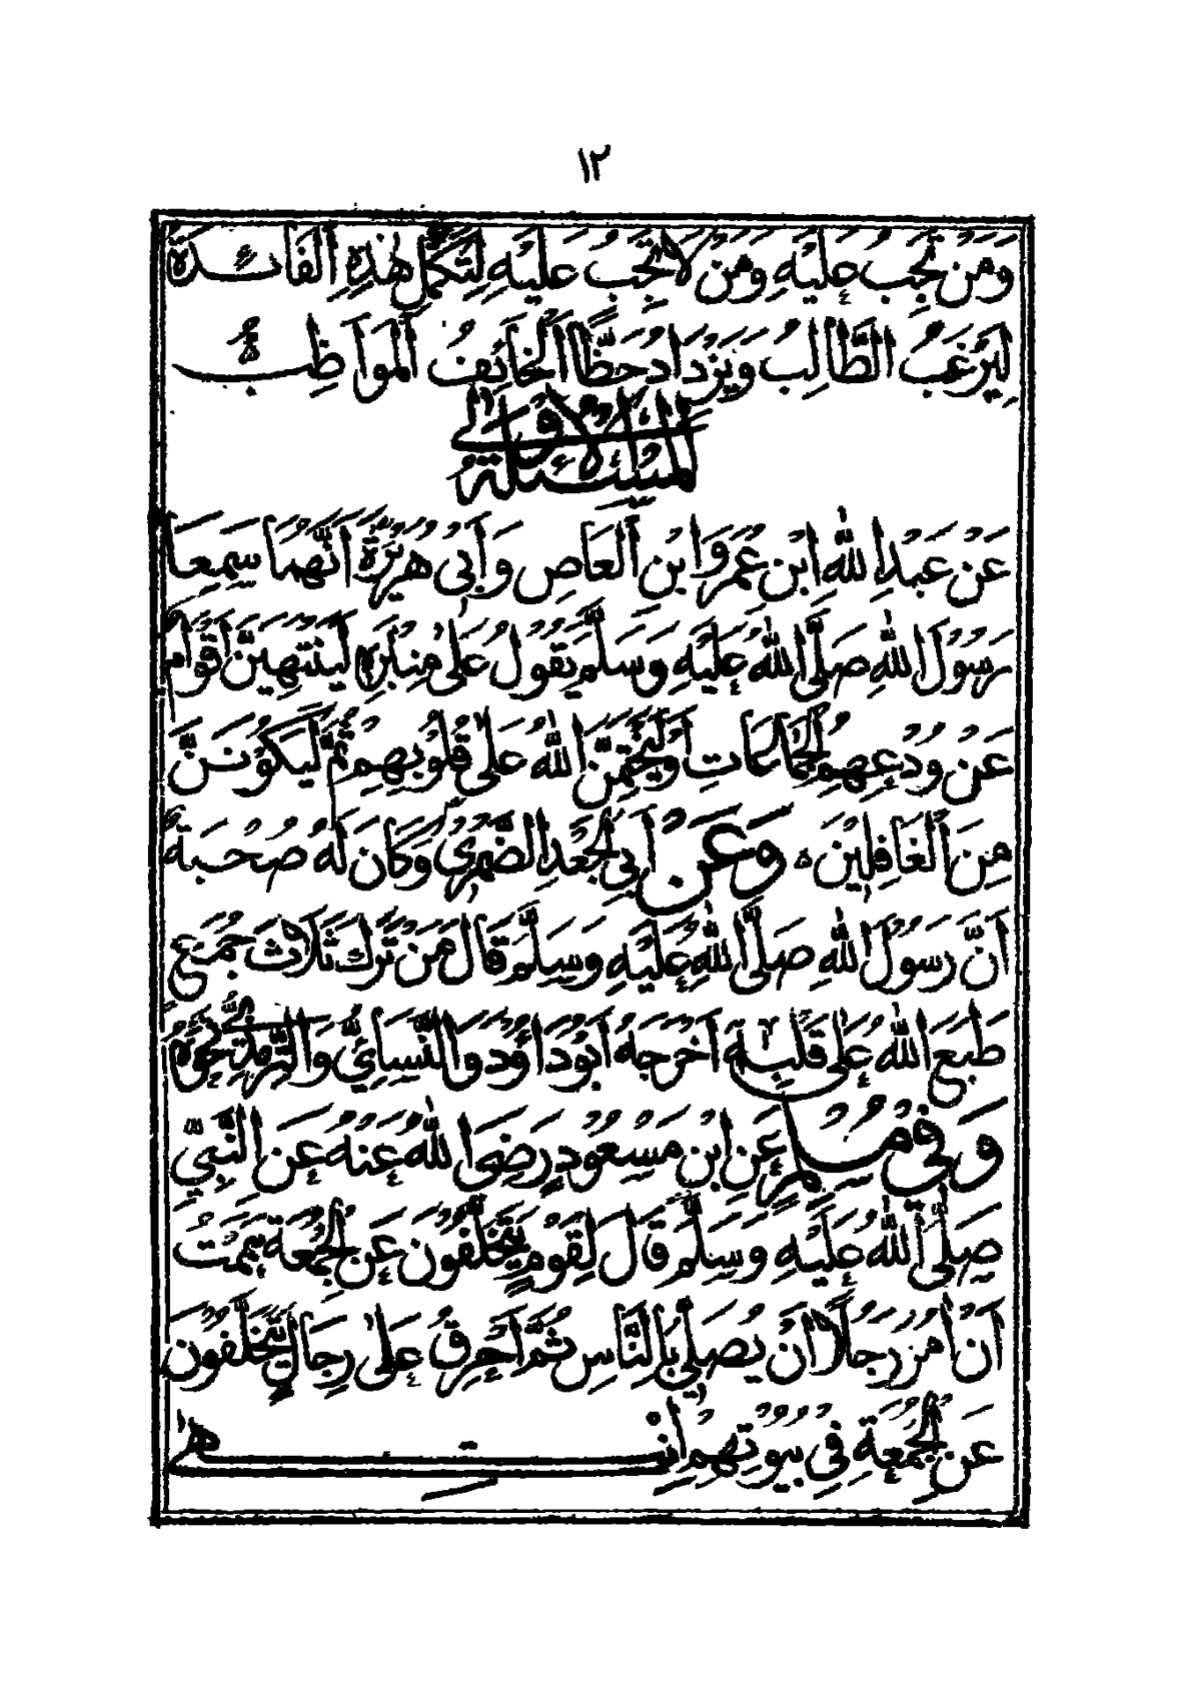 ١٢
وَمَنْ تَجِبُ عَلَيْهِ وَمَنْ لَا تَجِبُ عَلَيْهِ لِتَكْمُلَ هٰذِهِ الْفَائِدَةُ
لِيَرْغَبُ الطَّالِبُ وَيَزْدَادَ حَظًّا الْخَائِفُ الْمُوَاظِبُ
الْمَسْئَلَةُ الْاُولٰى
عَنْ عَبْدِ اللّٰهِ ابْنِ عَمْرٍو ابْنِ الْعَاصِ وَأَبِي هُرَيْرَةَ أَنَّهُمَا سَمِعَا
رَسُولَ اللّٰهِ صَلَّى اللّٰهُ عَلَيْهِ وَسَلَّمَ يَقُولُ عَلَى مِنْبَرِهِ لَيَنْتَهِيَنَّ أَقْوَامٌ
عَنْ وَدْعِهِمُ الْجَمَاعَاتِ أَوْ لَيَخْتِمَنَّ اللّٰهُ عَلَى قُلُوبِهِمْ ثُمَّ لَيَكُونَنَّ
مِنَ الْغَافِلِيْنَ ٥ وَعَنْ أَبِي الْجَعْدِ الضَّمْرِيِّ وَكَانَ لَهُ صُحْبَةٌ
أَنَّ رَسُولَ اللّٰهِ صَلَّى اللّٰهُ عَلَيْهِ وَسَلَّمَ قَالَ مَنْ تَرَكَ ثَلَاثَ جُمَعٍ
طَبَعَ اللّٰهُ عَلَى قَلْبِهِ أَخْرَجَهُ أَبُو دَاوُدَ وَالنَّسَائِيُّ وَالتِّرْمِذِيُّ نَحْوَهُ
وَفِي مُسْلِمٍ عَنِ ابْنِ مَسْعُودٍ رَضِيَ اللّٰهُ عَنْهُ عَنِ النَّبِيِّ
صَلَّى اللّٰهُ عَلَيْهِ وَسَلَّمَ قَالَ لِقَوْمٍ يَتَخَلَّفُونَ عَنِ الْجُمُعَةِ هَمَمْتُ
أَنْ أٰمُرَ رَجُلًا أَنْ يُصَلِّيَ بِالنَّاسِ ثُمَّ أُحَرِّقُ عَلَى رِجَالٍ يَتَخَلَّفُونَ
عَنِ الْجُمُعَةِ فِي بُيُوتِهِمْ اِنْتَهٰى